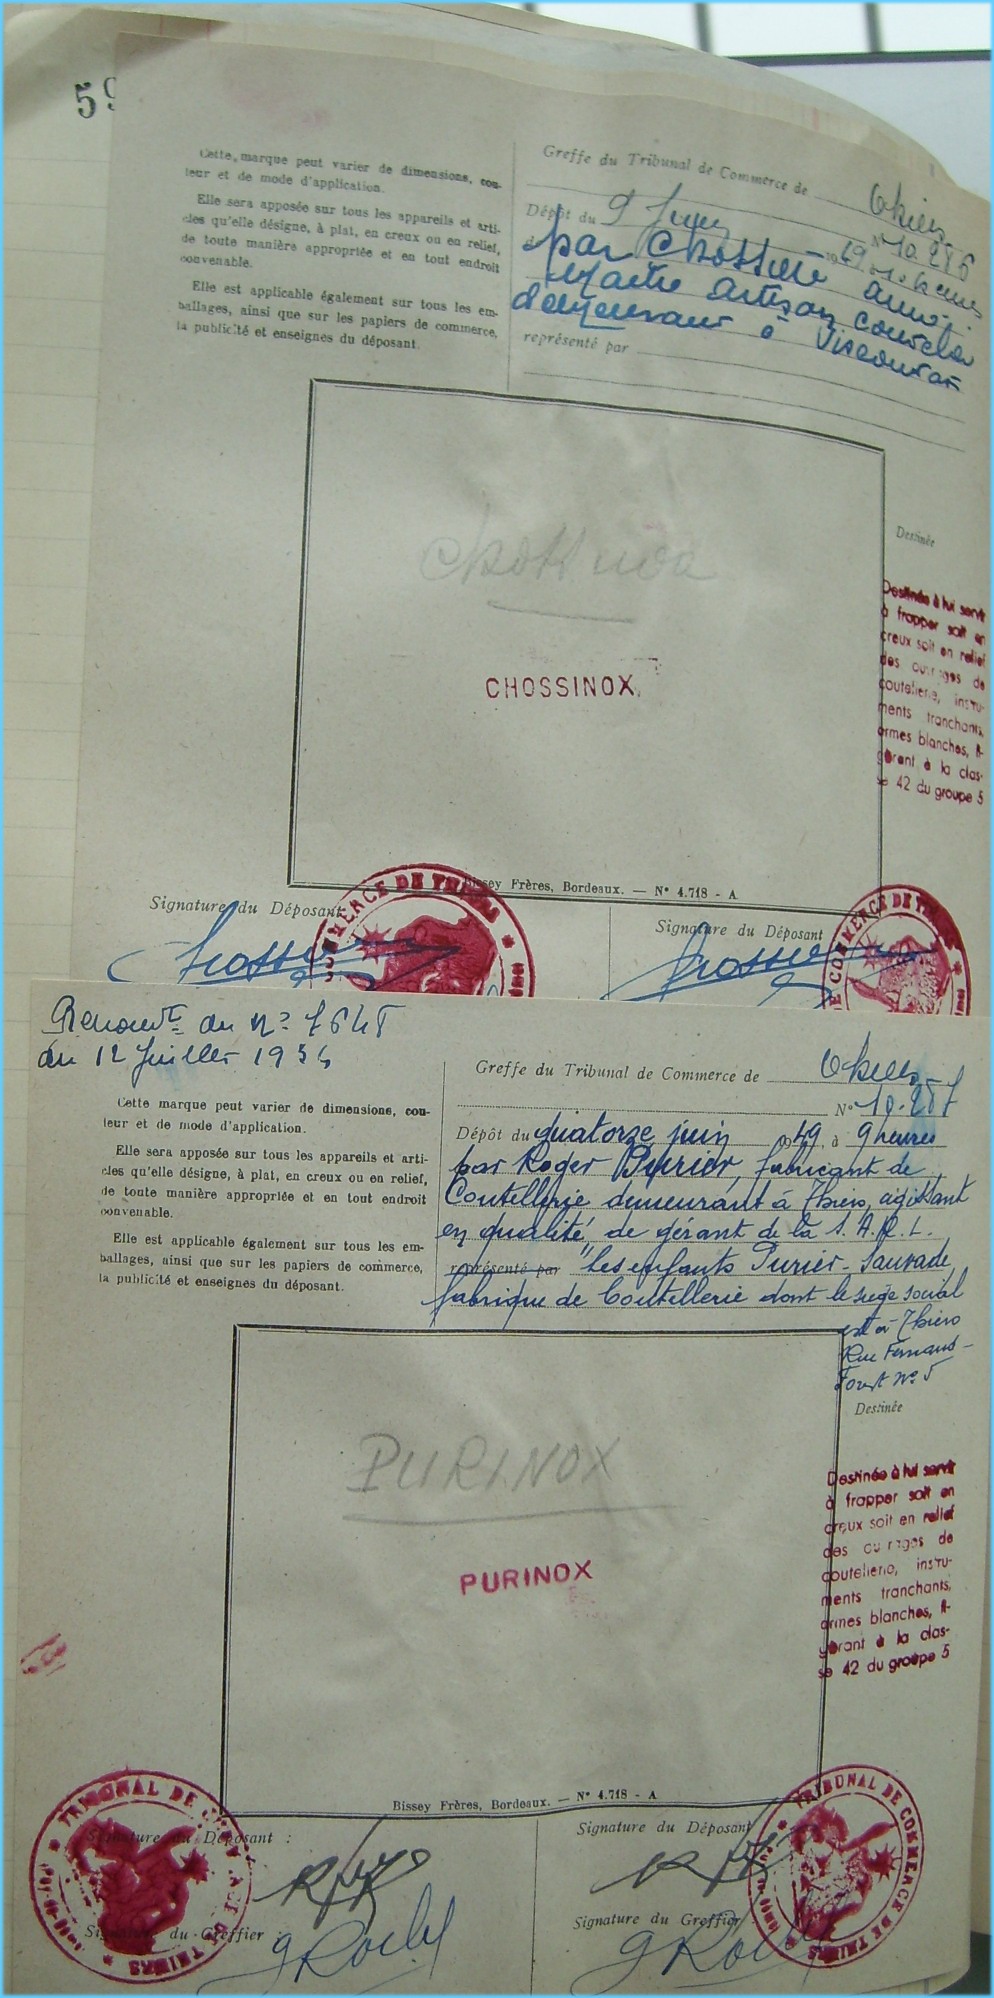 59
Cette marque peut varier de dimensions, cou-
leur et de mode d'application.
Elle sera apposée sur tous les appareils et arti-
cles qu'elle désigne, à plat, en creux ou en relief,
de toute manière appropriée et en tout endroit
convenable.
Elle est applicable également sur tous les em-
ballages, ainsi que sur les papiers de commerce,
la publicité et enseignes du déposant.
Greffe du Tribunal de Commerce de Thiers
N° 10.286
Dépôt du 9 Juin 1949
par Chossière
Maître Artisan coutelier
demeurant à Viscomtat
représenté par
CHOSSINOX
Destinée
Destinée à lui servir
à frapper soit en
creux soit en relief
des ouvrages de
coutellerie, instru-
ments tranchants,
armes blanches, fi-
gurant à la clas-
se 42 du groupe 5
Bissey Frères, Bordeaux. — N° 4.718 - A
Signature du Déposant
Signature du Déposant
COMMERCE DE THIERS
DE COMMERCE DE THIERS
du 12 Juillet 1934
Cette marque peut varier de dimensions, cou-
leur et de mode d'application.
Elle sera apposée sur tous les appareils et arti-
cles qu'elle désigne, à plat, en creux ou en relief,
de toute manière appropriée et en tout endroit
convenable.
Elle est applicable également sur tous les em-
ballages, ainsi que sur les papiers de commerce,
la publicité et enseignes du déposant.
Greffe du Tribunal de Commerce de Thiers
N° 10.287
Dépôt du quatorze juin 1949 à 9 heures
par Roger Purier, fabricant de
Coutellerie demeurant à Thiers, agissant
en qualité de gérant de la S.A.R.L.
représenté par "Les enfants Purier-Sauvade
fabrique de Coutellerie dont le siège social
est à Thiers
Rue Fernand-
Forest n° 5
Destinée
PURINOX
PURINOX
Destinée à lui servir
à frapper soit en
creux soit en relief
des ouvrages de
coutellerie, instru-
ments tranchants,
armes blanches, fi-
gurant à la clas-
se 42 du groupe 5
Bissey Frères, Bordeaux. — N° 4.718 - A
Signature du Déposant :
Signature du Déposant
Signature du Greffier
Signature du Greffier
TRIBUNAL DE COMMERCE DE THIERS
TRIBUNAL DE COMMERCE DE THIERS